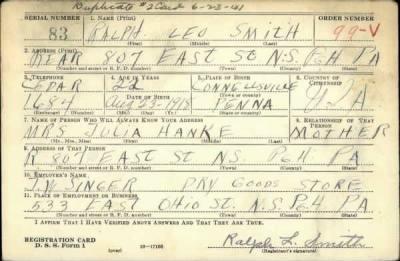 Duplicate #2 Card 6-23-41
SERIAL NUMBER 1. NAME (Print) ORDER NUMBER
83 RALPH LEO SMITH 99-V
(First) (Middle) (Last)
2. ADDRESS (Print)
REAR 807 EAST ST N.S. PGH PA
(Number and street or R. F. D. number) (Town) (County) (State)
3. TELEPHONE 4. AGE IN YEARS 5. PLACE OF BIRTH 6. COUNTRY OF CITIZENSHIP
CEDAR 22 CONNELLSVILLE
DATE OF BIRTH (Town or county)
1684 Aug 23-1918 PENNA
(Exchange) (Number) (Mo.) (Day) (Yr.) (State or country)
7. NAME OF PERSON WHO WILL ALWAYS KNOW YOUR ADDRESS 8. RELATIONSHIP OF THAT PERSON
MRS JULIA HANKE MOTHER
(Mr., Mrs., Miss) (First) (Middle) (Last)
9. ADDRESS OF THAT PERSON
R 807 EAST ST NS PGH PA
(Number and street or R. F. D. number) (Town) (County) (State)
10. EMPLOYER'S NAME
J.W. SINGER DRY GOODS STORE
11. PLACE OF EMPLOYMENT OR BUSINESS
533 EAST OHIO ST. N.S. PGH PA
(Number and street or R. F. D. number) (Town) (County) (State)
I AFFIRM THAT I HAVE VERIFIED ABOVE ANSWERS AND THAT THEY ARE TRUE.
REGISTRATION CARD
D. S. S. Form 1 (over) 16-17105 Ralph L. Smith
(Registrant's signature)